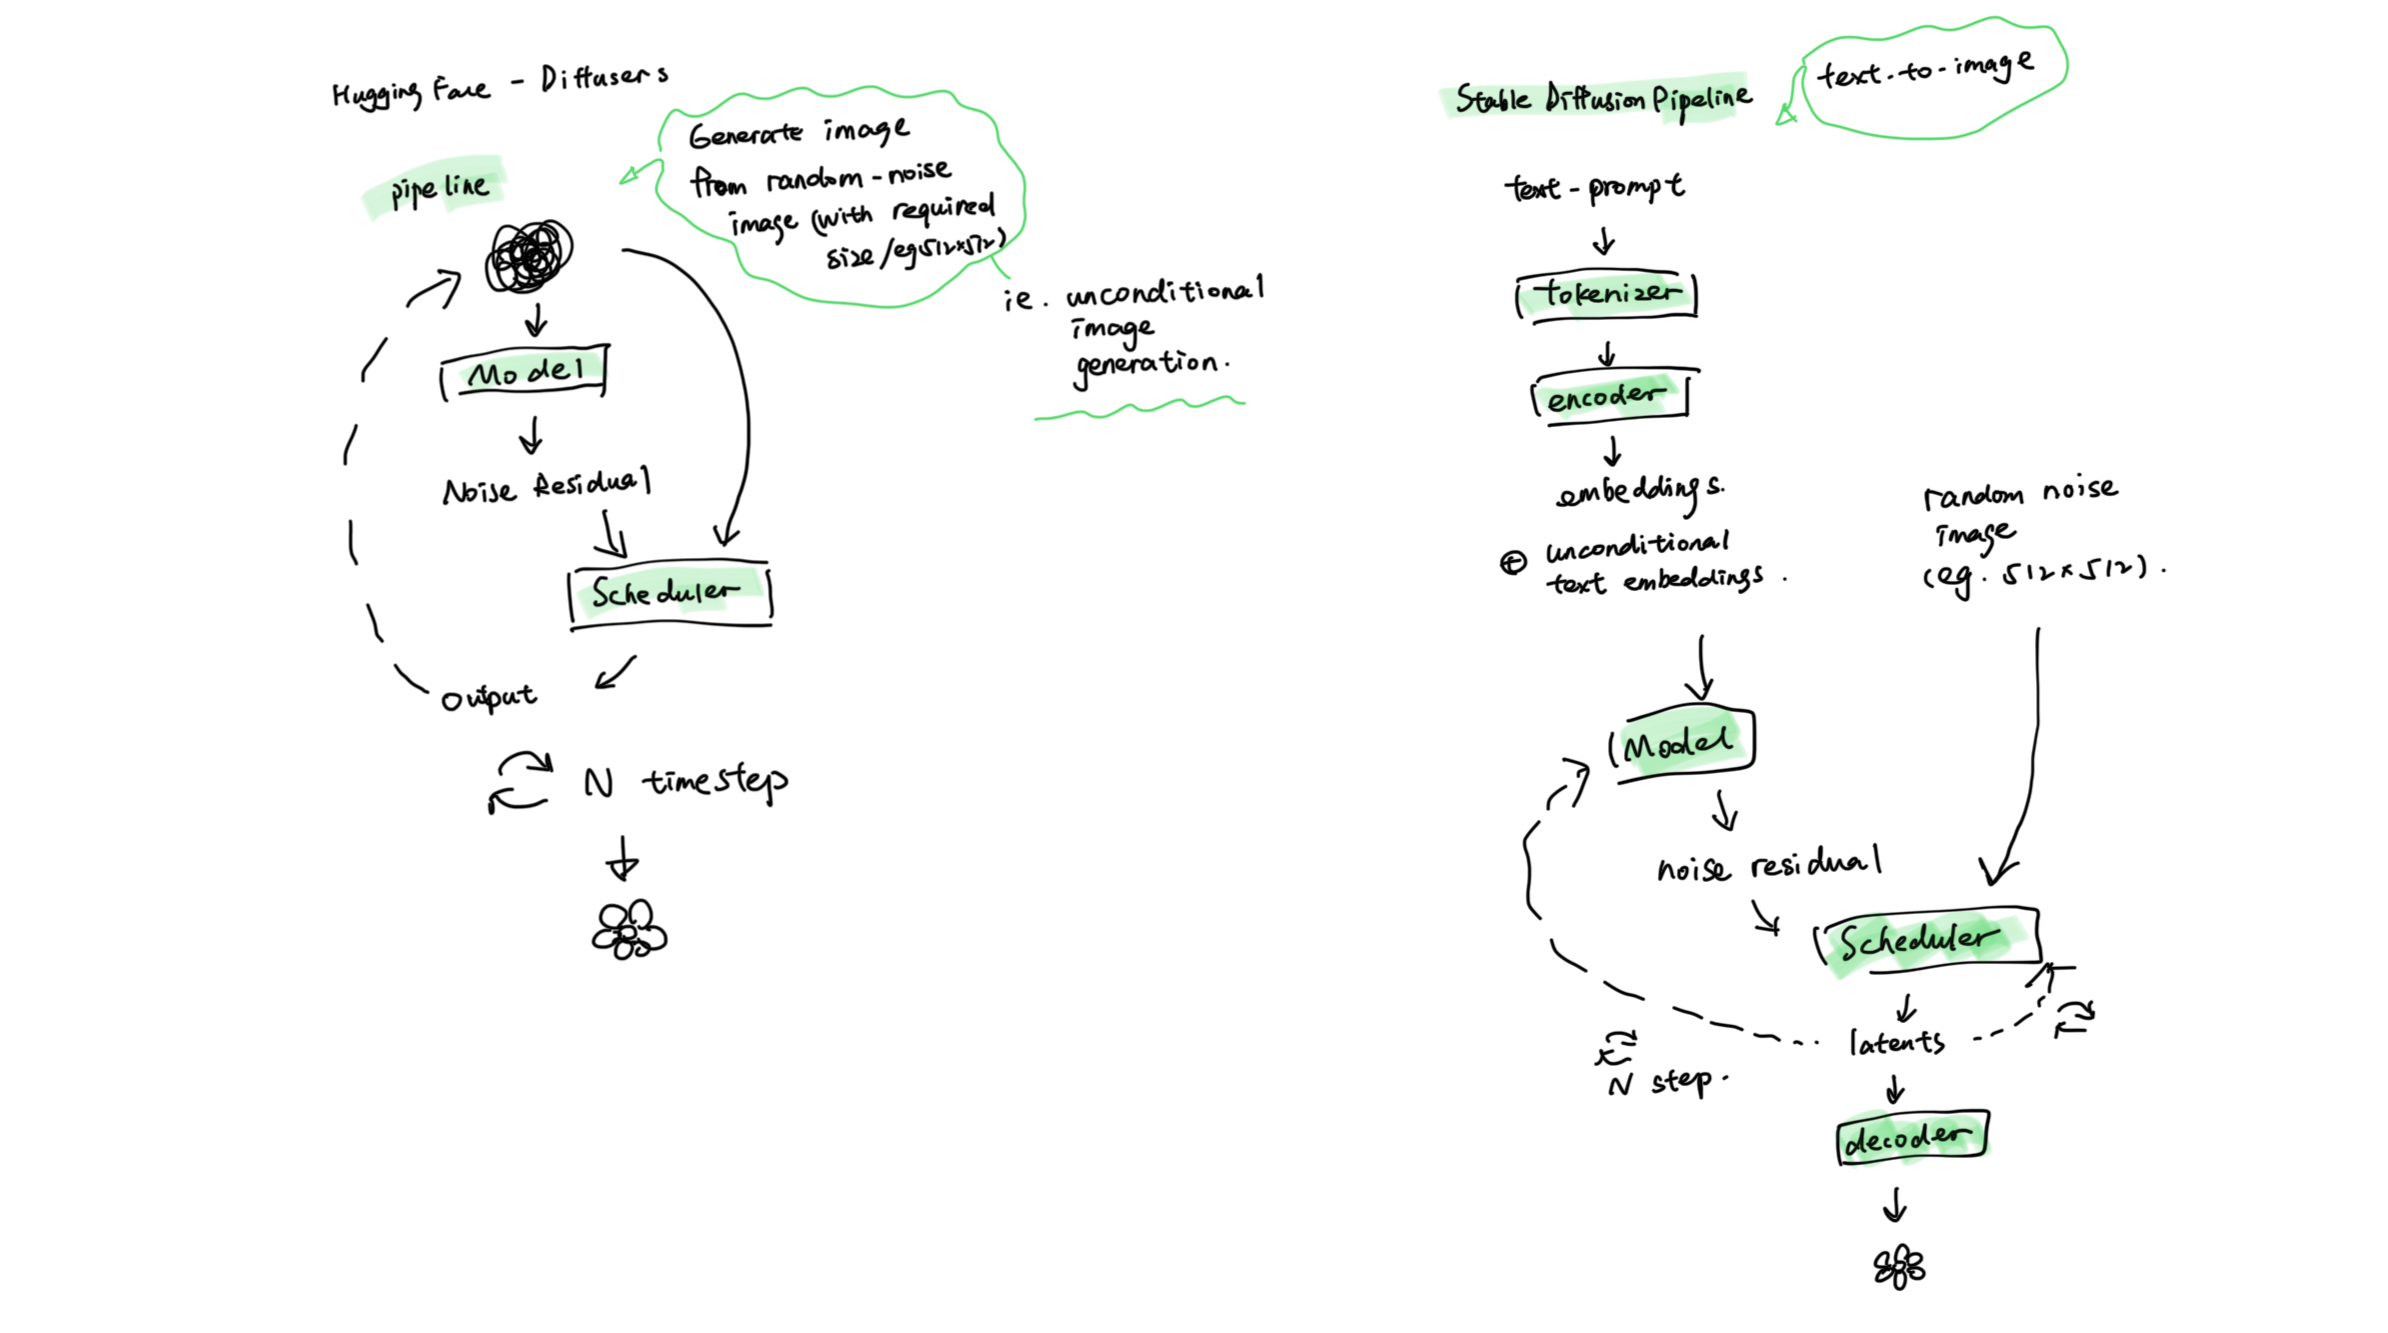 Hugging Face - Diffusers
pipeline
Generate image
from random-noise
image (with required
size/eg 512x512)
ie. unconditional
image
generation.
Model
Noise Residual
Scheduler
output
N timesteps
Stable Diffusion Pipeline
text-to-image
text-prompt
tokenizer
encoder
embeddings.
+ unconditional
text embeddings.
random noise
image
(eg. 512x512).
Model
noise residual
Scheduler
latents
N step.
decoder